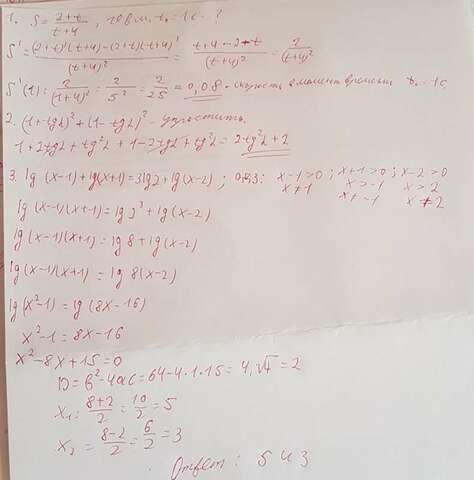 1. S = (2+t)/(t+4), t в м. t₀ = 1 c. ?
S' = ((2+t)'(t+4) - (2+t)(t+4)')/(t+4)² = (t+4-2-t)/(t+4)² = 2/(t+4)²
S'(1) = 2/(1+4)² = 2/5² = 2/25 = 0,08 - скорость в момент времени t₀ = 1 c,
2. (1+tgα)² + (1-tgα)² - упростить.
1+2tgα+tg²α+1-2tgα+tg²α = 2tg²α+2
3. lg (x-1)+lg(x+1) = 3lg2+lg(x-2) ; ОДЗ: x-1>0; x+1>0; x-2>0
x≠1 x>-1 x>2
x≠-1 x≠2
lg(x-1)(x+1) = lg2³+lg(x-2)
lg(x-1)(x+1) = lg8+lg(x-2)
lg(x-1)(x+1) = lg8(x-2)
lg(x²-1) = lg(8x-16)
x²-1 = 8x-16
x²-8x+15=0
D = b²-4ac = 64-4·1·15 = 4, √4 = 2
x₁ = (8+2)/2 = 10/2 = 5
x₂ = (8-2)/2 = 6/2 = 3
Ответ : 5 и 3